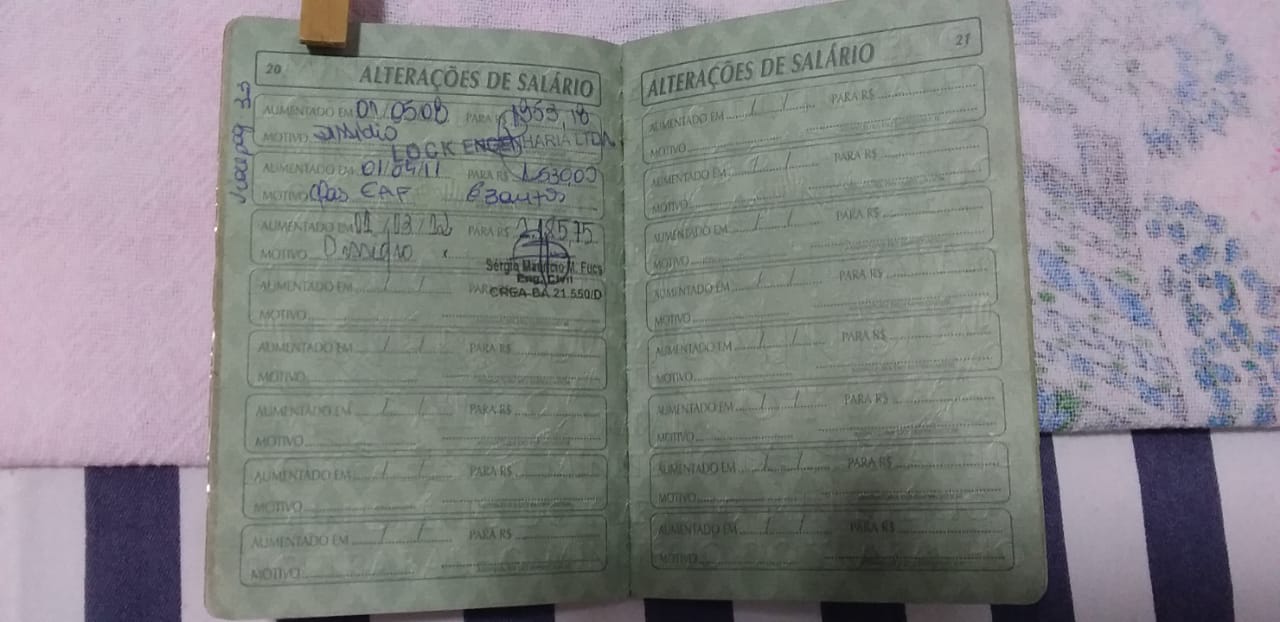 20
ALTERAÇÕES DE SALÁRIO
AUMENTADO EM 01/05/08 PARA R$ 1953,18
MOTIVO dissídio
LOCK ENGENHARIA LTDA
AUMENTADO EM 01/04/11 PARA R$ 1.530,00
MOTIVO
AUMENTADO EM 01/03/12 PARA R$ 2.185,75
MOTIVO
Sérgio Maurício M. Fucs
Eng. Civil
CREA-BA 21.550/D
AUMENTADO EM / / PARA
MOTIVO
AUMENTADO EM / / PARA R$
MOTIVO
AUMENTADO EM / / PARA R$
MOTIVO
AUMENTADO EM / / PARA R$
MOTIVO
AUMENTADO EM / / PARA R$
MOTIVO
21
ALTERAÇÕES DE SALÁRIO
AUMENTADO EM / / PARA R$
MOTIVO
AUMENTADO EM / / PARA R$
MOTIVO
AUMENTADO EM / / PARA R$
MOTIVO
AUMENTADO EM / / PARA R$
MOTIVO
AUMENTADO EM / / PARA R$
MOTIVO
AUMENTADO EM / / PARA R$
MOTIVO
AUMENTADO EM / / PARA R$
MOTIVO
AUMENTADO EM / / PARA R$
MOTIVO